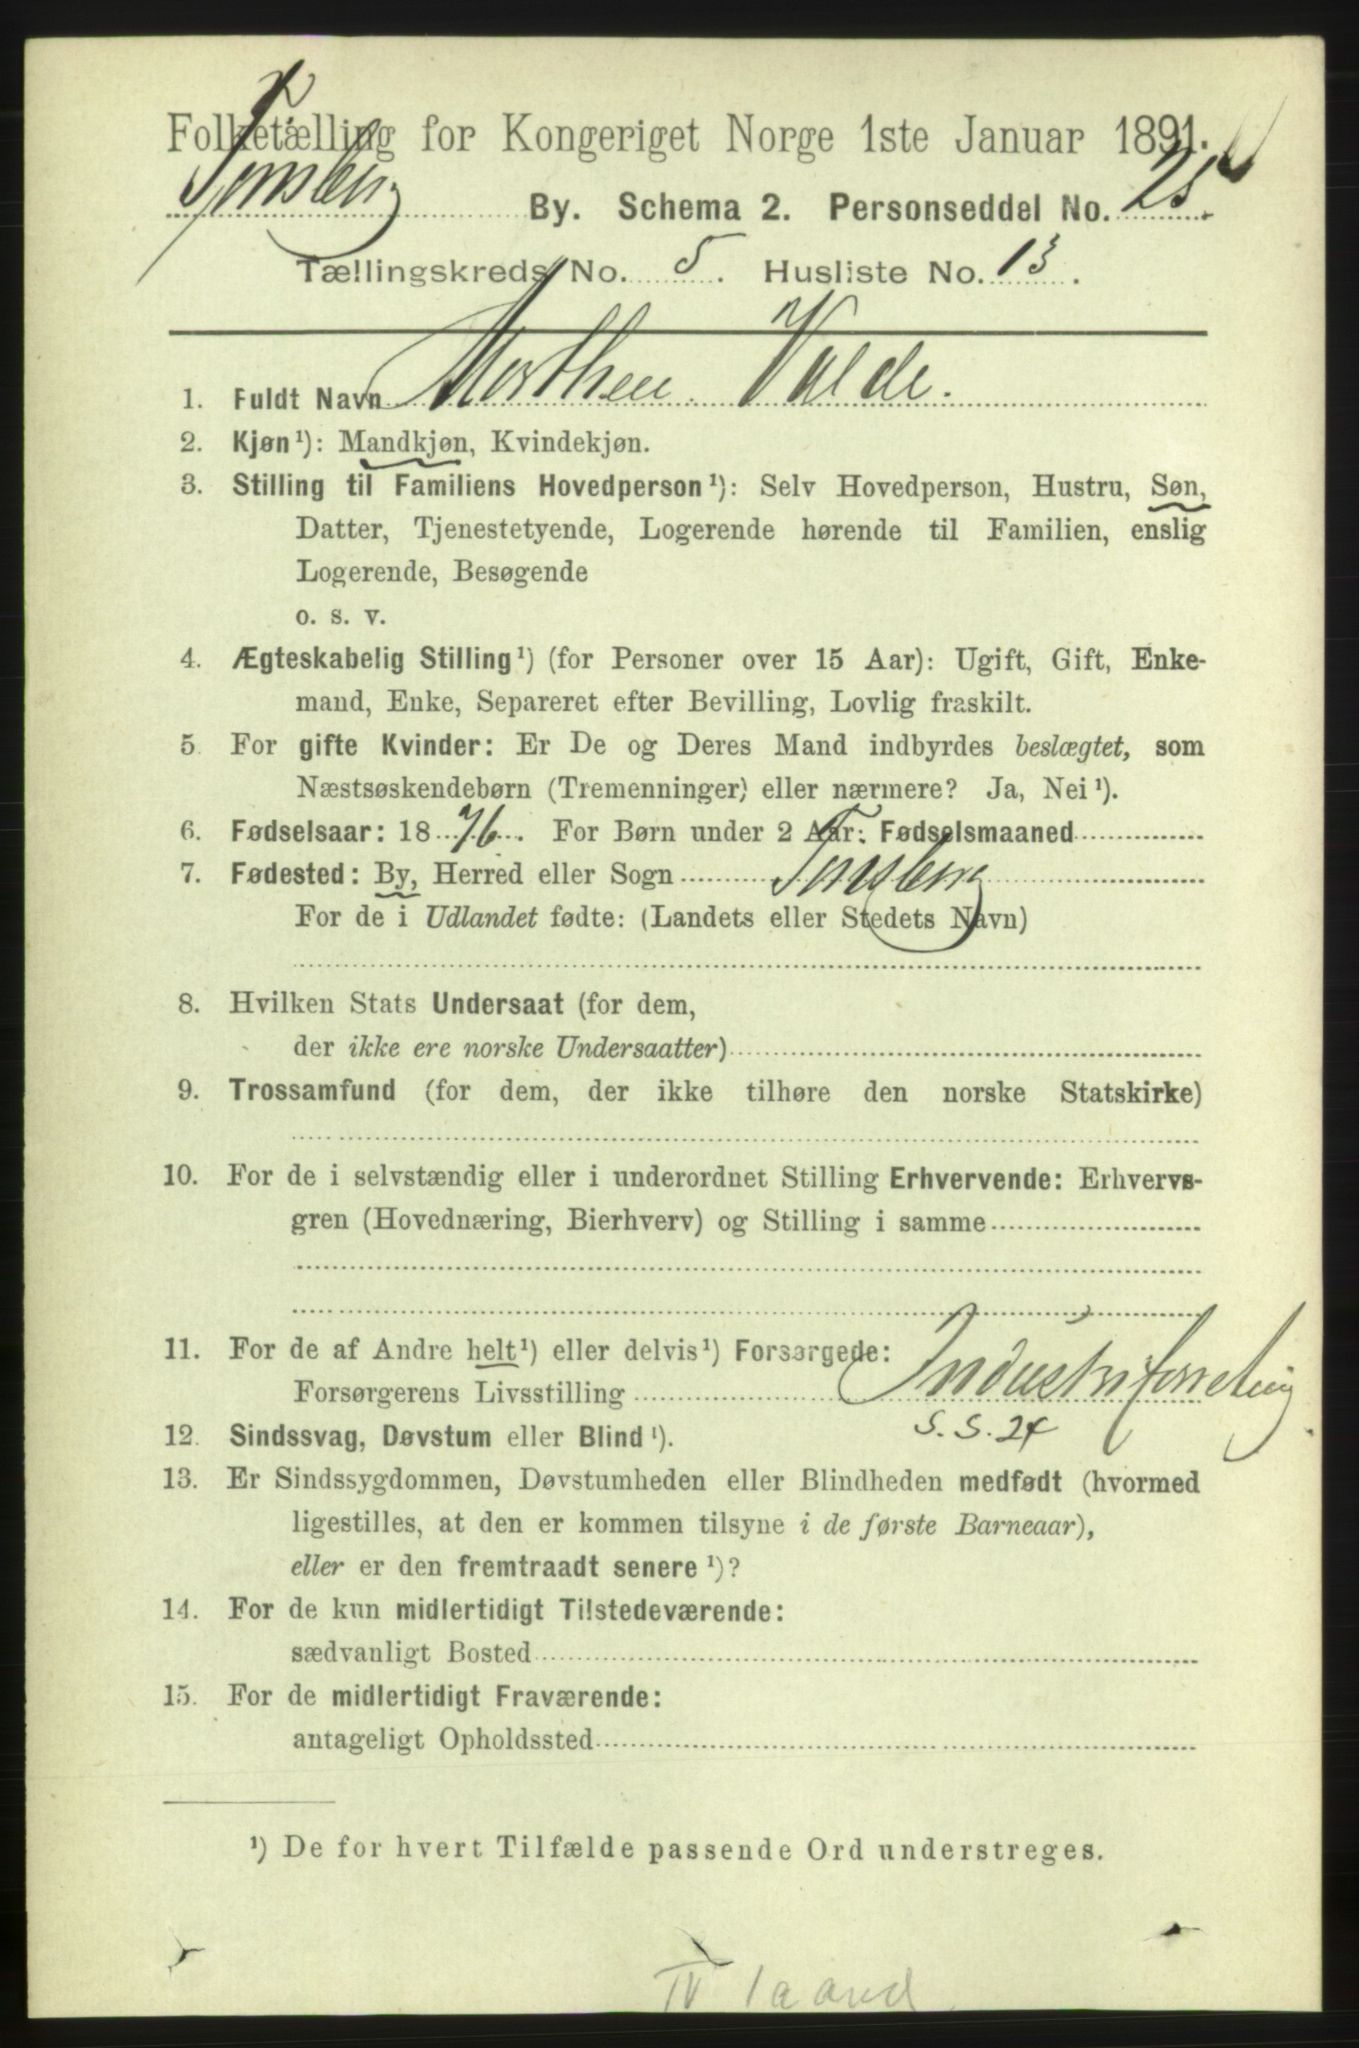 Folketælling for Kongeriget Norge 1ste Januar 1891.
Tønsberg By. Schema 2. Personseddel No. 25.
Tællingskreds No. 5. Husliste No. 13.
1. Fuldt Navn Morthen Valde.
2. Kjøn¹): Mandkjøn, Kvindekjøn.
3. Stilling til Familiens Hovedperson¹): Selv Hovedperson, Hustru, Søn,
Datter, Tjenestetyende, Logerende hørende til Familien, enslig
Logerende, Besøgende
o. s. v.
4. Ægteskabelig Stilling¹) (for Personer over 15 Aar): Ugift, Gift, Enke-
mand, Enke, Separeret efter Bevilling, Lovlig fraskilt.
5 For gifte Kvinder: Er De og Deres Mand indbyrdes beslægtet, som
Næstsøskendebørn (Tremenninger) eller nærmere? Ja, Nei¹).
6. Fødselsaar: 1876. For Børn under 2 Aar: Fødselsmaaned
7. Fødested: By, Herred eller Sogn Tønsberg
For de i Udlandet fødte: (Landets eller Stedets Navn)
8. Hvilken Stats Undersaat (for dem,
der ikke ere norske Undersaatter)
9. Trossamfund (for dem, der ikke tilhøre den norske Statskirke)
10. For de i selvstændig eller i underordnet Stilling Erhvervende: Erhvervs-
gren (Hovednæring, Bierhverv) og Stilling i samme
11. For de af Andre helt¹) eller delvis¹) Forsørgede:
Forsørgerens Livsstilling Industriforretning
S. S. 24
12. Sindssvag, Døvstum eller Blind¹).
13. Er Sindssygdommen, Døvstumheden eller Blindheden medfødt (hvormed
ligestilles, at den er kommen tilsyne i de første Barneaar),
eller er den fremtraadt senere¹)?
14. For de kun midlertidigt Tilstedeværende:
sædvanligt Bosted
15. For de midlertidigt Fraværende:
antageligt Opholdssted
¹) De for hvert Tilfælde passende Ord understreges.